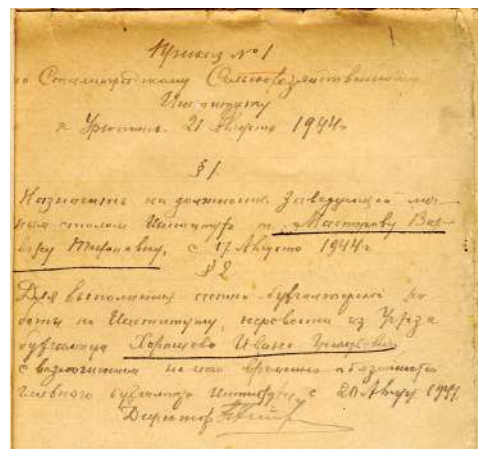 Приказ № 1
по Сталинградскому Сельскохозяйственному
Институту
г. Урюпинск 21 Августа 1944 г.
§ 1
Назначить на должность Заведующей
столом Института т. Мастерову
с 17 Августа 1944 г.
§ 2
Для выполнения бухгалтерской ра
боты по Институту, перевести из
бухгалтера Хорошева Ивана
с возложением на него временно обязанности
главного бухгалтера Института с 20 Августа 1944
Директор